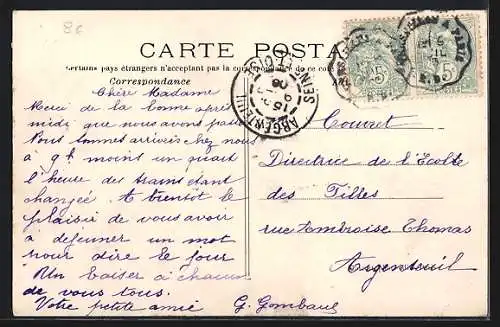 86
CARTE POSTA
Certains pays étrangers n'acceptent pas la correspondance de ce côté
Correspondance
ARGENTEUIL
SEINE-ET-OISE
5
5
Chère Madame
Merci de la bonne après
midi que nous avons passé
Nous sommes arrivés chez nous
à 9h moins un quart
l'heure des trains étant
changée. A bientôt le
plaisir de vous avoir
à dejeuner un mot
pour dire le jour
Un baiser à chacun
de vous tous.
Votre petite amie
G. Gombaus
Couvret
Directrice de l'Ecolte
des Filles
rue Ambroise Thomas
Argenteuil